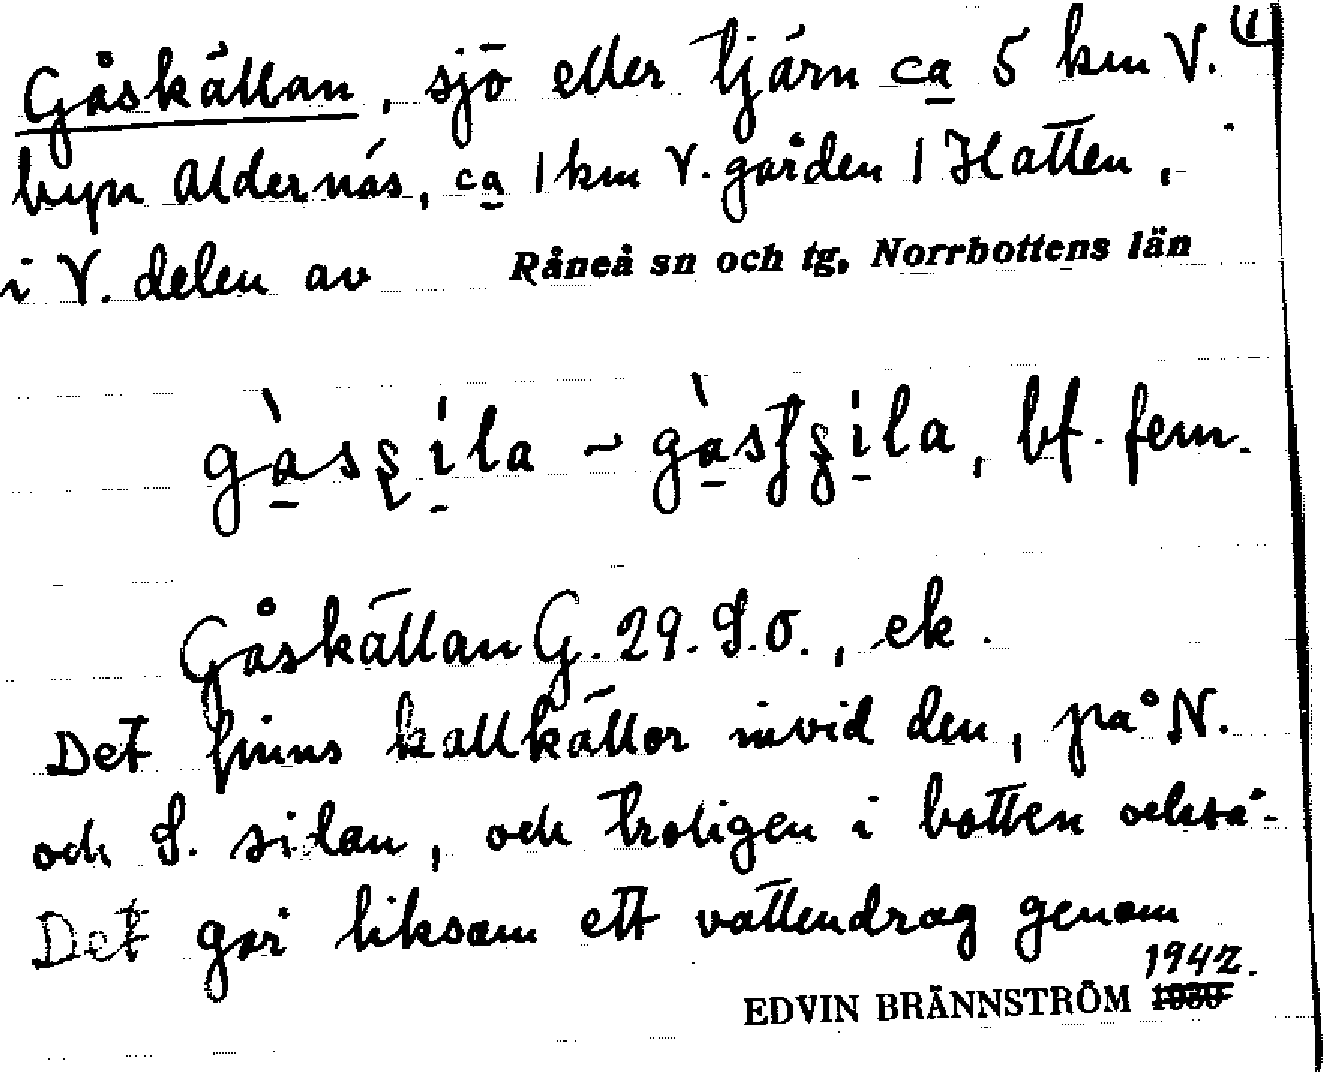 Gåskällan, sjö eller tjärn ca 5 km V. (1
byn Aldernäs, ca 1 km V. gården 1 Hatten,
i V. delen av Råneå sn och tg, Norrbottens län
bf. fem.
Gåskällan G. 29. S.O., ek.
Det finns kallkällor invid den, på N.
och S. sidan, och troligen i botten också.
Det går liksom ett vattendrag genom
1942.
EDVIN BRÄNNSTRÖM 1930